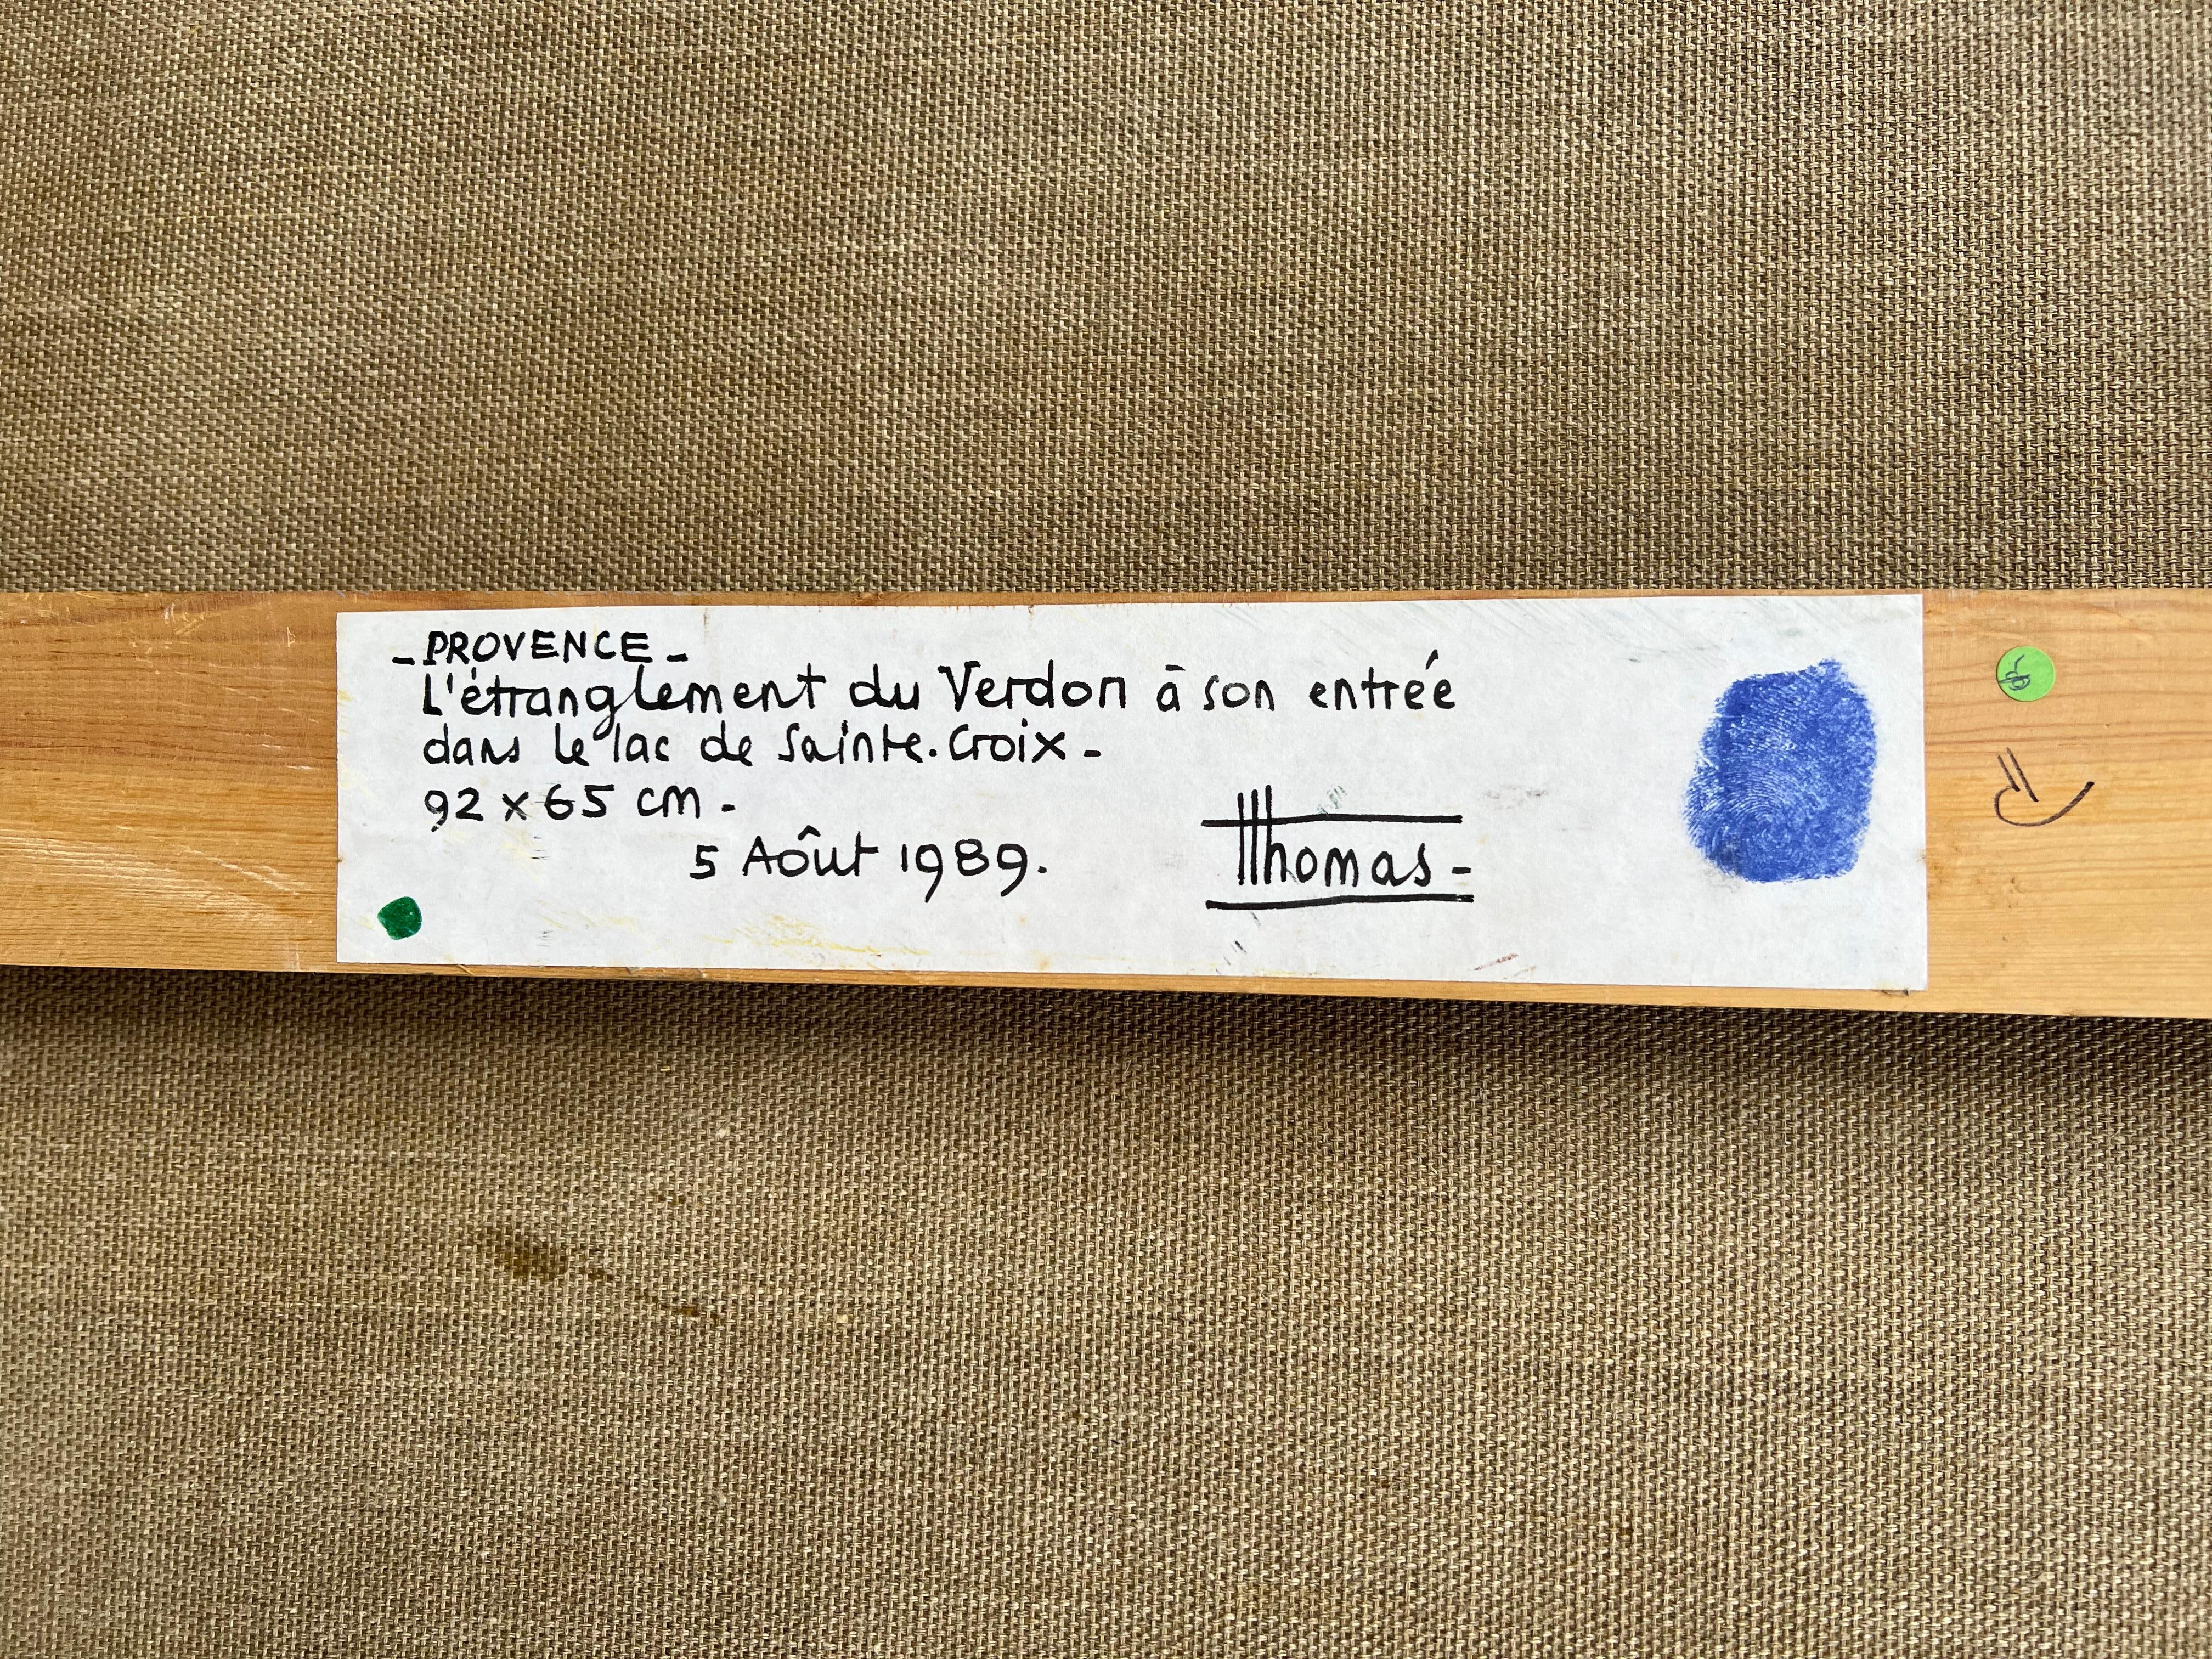 - PROVENCE -
L'étranglement du Verdon à son entrée
dans le lac de Sainte.Croix -
92 x 65 cm -
5 Aôut 1989.
Thomas -